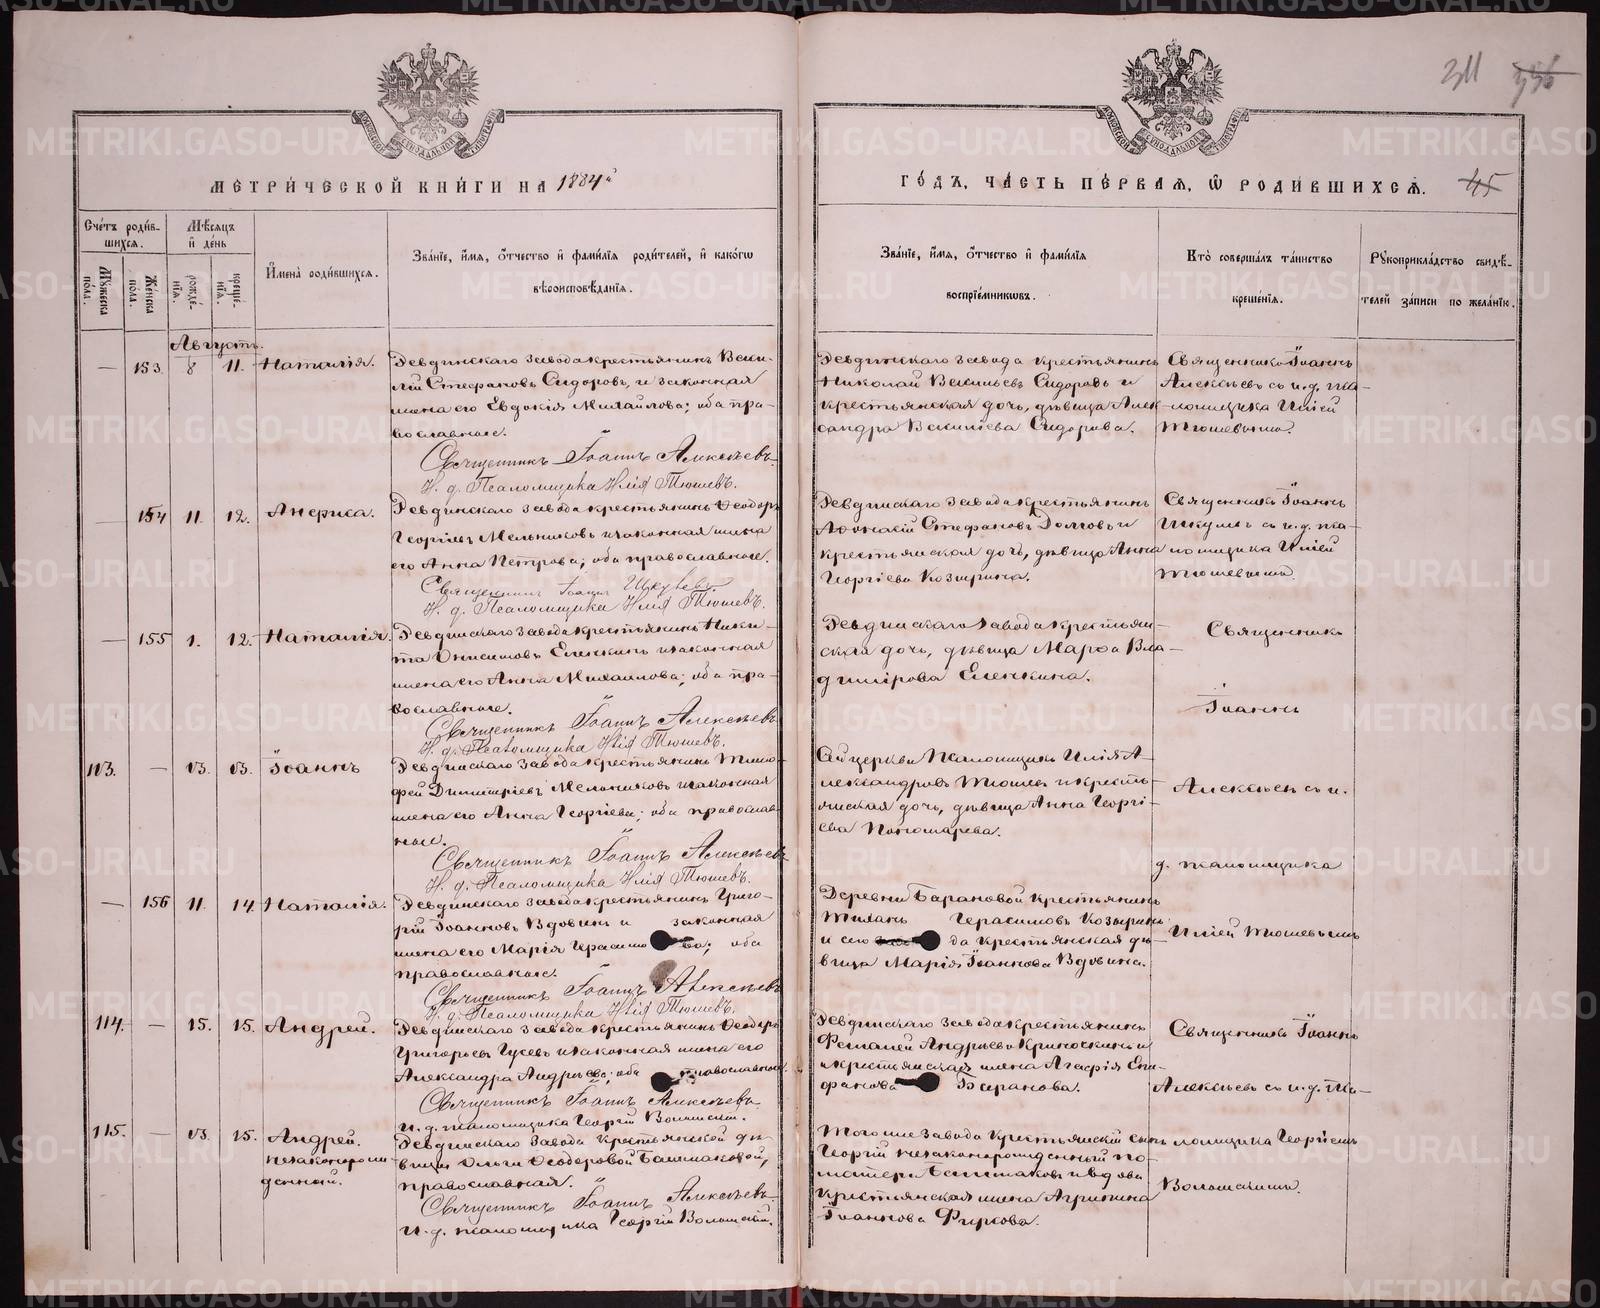 311 336
МЕТРИ́ЧЕСКОЙ КНИ́ГИ НА 1884й
ГО́ДЪ, ЧА́СТЬ ПЕ́РВАЯ, Ѽ РОДИ́ВШИХСѦ. 45
Сче́тъ роди́в-
шихсѧ.
Мꙋжеска по́ла.
Же́нска по́ла.
Мѣ́сѧцъ
и҆ де́нь
рожде́-
нїѧ.
креще́-
нїѧ.
И҆мена̀ роди́вшихсѧ.
Зва́нїе, и҆́мѧ, ѻ҆́тчество и҆ фами́лїѧ роди́телей, и҆ како́гѡ
вѣроисповѣ́данїѧ.
Зва́нїе, и҆́мѧ, ѻ҆́тчество и҆ фами́лїѧ
воспрїе́мникѡвъ.
Кто̀ соверша́лъ та́инство
креще́нїѧ.
Рꙋкоприкла́дство свидѣ́-
телей за́писи по жела́нїю.
Августъ.
— 153. 8 11. Наталія.
Ревдинскаго завода крестьянинъ Васи-
лій Стефановъ Сидоровъ, и законная
жена его Евдокія Михайлова; оба пра-
вославные.
Священникъ Іоаннъ Алексѣевъ.
И. д. Псаломщика Илія Тюшевъ.
Ревдинскаго завода крестьянинъ
Николай Васильевъ Сидоровъ и
крестьянская дочь, дѣвица Алек-
сандра Васильева Сидорова.
Священникъ Іоаннъ
Алексѣевъ съ и. д. пса-
ломщика Иліей
Тюшевымъ.
— 154 11. 12. Анфиса.
Ревдинскаго завода крестьянинъ Ѳеодоръ
Георгіевъ Мельниковъ и законная жена
его Анна Петрова; оба православные.
Священникъ Іоаннъ
И. д. Псаломщика Илія Тюшевъ.
Ревдинскаго завода крестьянинъ
Стефановъ Долговъ и
крестьянская дочь, дѣвица Анна
Георгіева Козырина.
Священникъ Іоаннъ
съ и. д. пса-
ломщика Иліей
Тюшевымъ.
— 155 1. 12. Наталія.
Ревдинскаго завода крестьянинъ Ники-
та Онисимовъ Еленкинъ и законная
жена его Анна Михаилова; оба пра-
вославные.
Священникъ Іоаннъ Алексѣевъ
И. д. Псаломщика Илія Тюшевъ.
Ревдинскаго завода крестьян-
ская дочь, дѣвица Марѳа Вла-
димірова Еленкина.
Священникъ
Іоаннъ
113. — 13. 13. Іоаннъ
Ревдинскаго завода крестьянинъ Тимо-
фей Димитріевъ Мельниковъ и законная
жена его Анна Георгіева; оба православ-
ные.
Священникъ Іоаннъ Алексѣевъ
И. д. Псаломщика Илія Тюшевъ.
Сей церкви Псаломщикъ Илія А-
лександровъ Тюшевъ и кресть-
янская дочь, дѣвица Анна Георгі-
ева Пономарева.
Алексѣевъ съ и.
д. псаломщика
— 156 11. 14. Наталія.
Ревдинскаго завода крестьянинъ Григо-
рій Іоанновъ Вдовинъ и законная
жена его Марія ; оба
православные.
Священникъ Іоаннъ Алексѣевъ
И. д. Псаломщика Илія Тюшевъ.
Деревни Барановой крестьянинъ
Герасимовъ Козыринъ
и сего да крестьянская дѣ-
вица Марія Іоаннова Вдовина.
Иліей Тюшевымъ
114. — 15. 15. Андрей.
Ревдинскаго завода крестьянинъ Ѳеодоръ
Григорьевъ Гусевъ и законная жена его
Александра Андреева; оба православные.
Священникъ Іоаннъ Алексѣевъ.
И. д. псаломщика Георгій Волынскій.
Ревдинскаго завода крестьянинъ
Андрѣевъ и
крестьянская жена Агафія Епи-
фанова Баранова.
Священникъ Іоаннъ
Алексѣевъ съ и. д. Пса-
115. — 13. 15. Андрей.
незаконорож-
денный.
Ревдинскаго завода крестьянской дѣ-
вицы Ольги Ѳеодоровой Башмаковой,
православная.
Священникъ Іоаннъ Алексѣевъ
И. д. псаломщика Георгій Волынскій.
Того же завода крестьянскій сынъ
Георгій незаконорожденный по
матери Башмаковъ и вдова
крестьянская жена Агрипина
Іоаннова Фиркова.
ломщика Георгіемъ
Волынскимъ.
METRIKI.GASO-URAL.RU